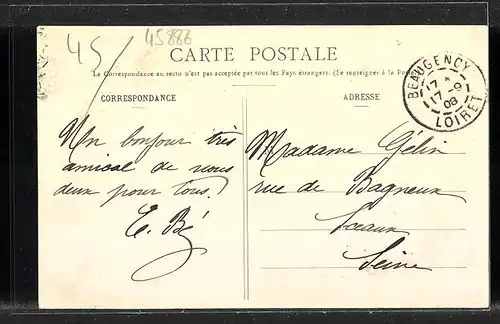 45/
45886
CARTE POSTALE
La Correspondance au recto n'est pas acceptée par tous les Pays étrangers. (Se renseigner à la Po
CORRESPONDANCE
ADRESSE
BEAUGENCY
17 - 9
08
LOIRET
Un bonjour très
amical de nous
deux pour tous.
E. Bé
Madame Gélin
rue de Bagneux
Sceaux
Seine